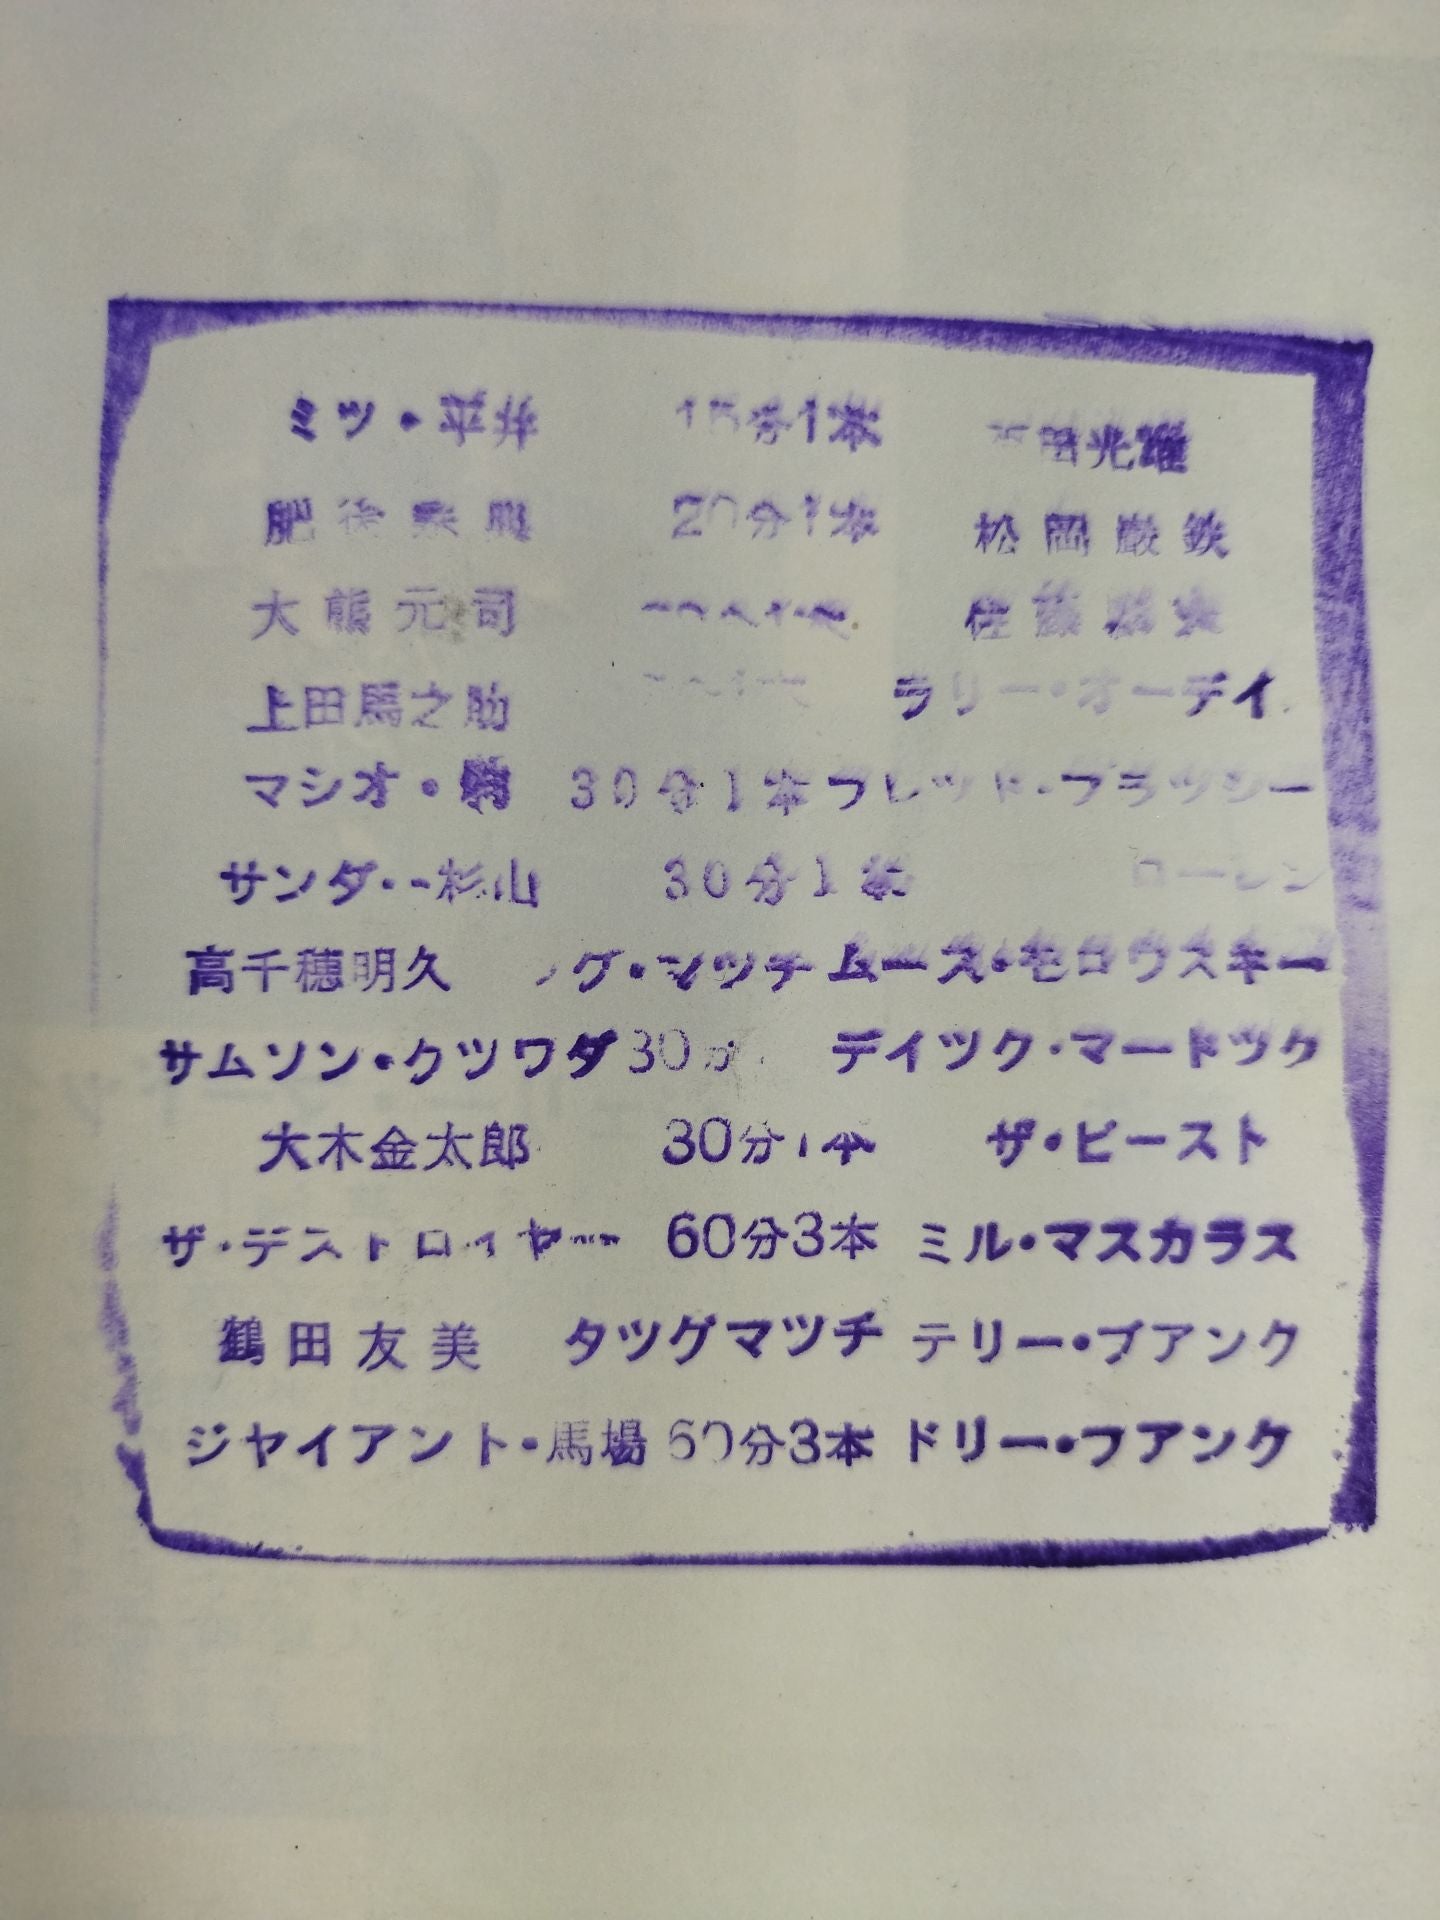 ミツ・平井 15分1本 光耀
肥後 20分1本 松岡巌鉄
大熊元司 佐藤
上田馬之助 ラリー・オーデイ
マシオ・駒 30分1本 フレツド・ブラツシー
サンダー杉山 30分1本 ローレン
高千穂明久 グ・マツチ ムース・モロウスキー
サムソン・クツワダ 30分 デイツク・マードツク
大木金太郎 30分1本 ザ・ビースト
ザ・デストロイヤー 60分3本 ミル・マスカラス
鶴田友美 タツグマツチ テリー・フアンク
ジヤイアント・馬場 60分3本 ドリー・フアンク